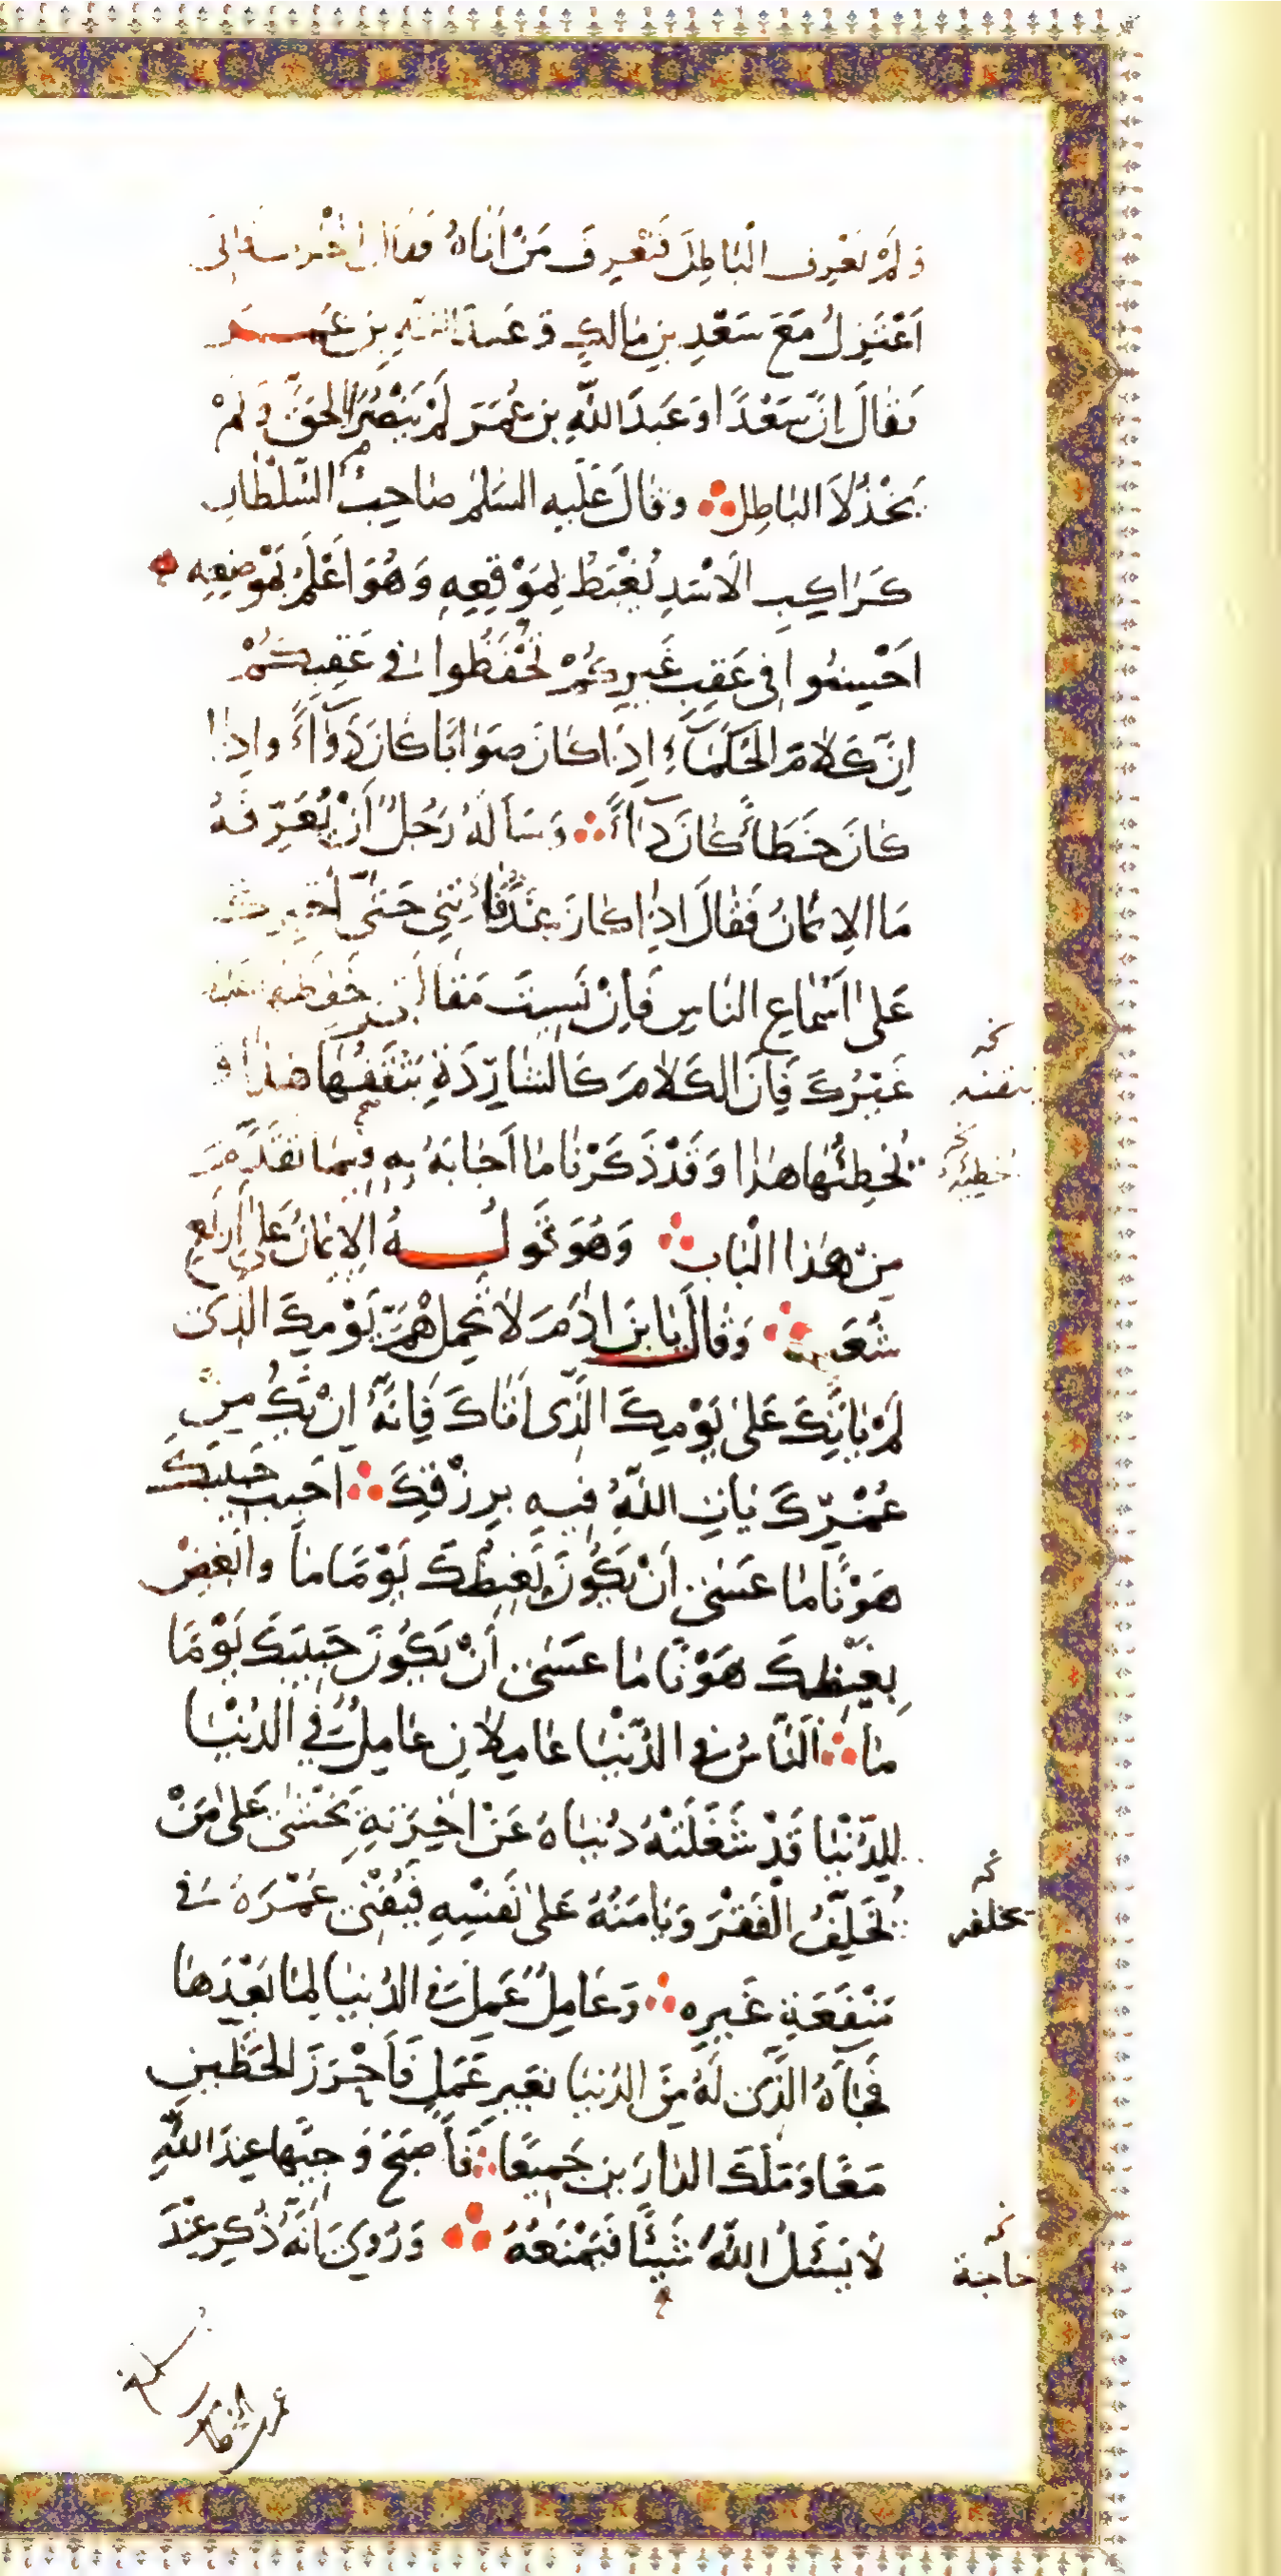 وَلَمْ تَعْرِفِ الْبَاطِلَ فَتَعْرِفَ مَنْ أَتَاهُ فَقَالَ
اَعْتَزِلُ مَعَ سَعْدِ بنِ مَالِكٍ وَ عَبدِ اللّٰهِ بنِ عُمَر
فَقَالَ اِنَّ سَعْدًا وَ عَبدَ اللّٰهِ بنَ عُمَرَ لَمْ يَنْصُرَا الْحَقَّ وَ لَمْ
يَخْذُلَا البَاطِلَ وَ قَالَ عَلَيهِ السَّلٰمُ صَاحِبُ السُّلْطَانِ
كَرَاكِبِ الْاَسَدِ يُغْبَطُ بِمَوْقِعِهِ وَ هُوَ اَعْلَمُ بِمَوْضِعِهِ
اَحْسِنُوا فِي عَقِبِ غَيرِكُمْ تُحْفَظُوا فِي عَقِبِكُمْ
اِنَّ كَلَامَ الْحُكَمَآءِ اِذَا كَانَ صَوَابًا كَانَ دَوَاءً وَ اِذَا
كَانَ خَطَاءً كَانَ دَاءً وَ سَاَلَهُ رَجُلٌ اَنْ يُعَرِّفَهُ
مَا الِايمَانُ فَقَالَ اِذَا كَانَ غَدٌ فَأْتِنِي حَتّٰى اُخْبِرَكَ
عَلىٰ اَسْمَاعِ النَّاسِ فَاِنْ نَسِيتَ مَقَالَتِي حَفِظَهَا عَلَيْكَ
غَيْرُكَ فَاِنَّ الكَلَامَ كَالشَّارِدَةِ يَثْقَفُهَا هٰذَا وَ
يُخْطِئُهَا هٰذَا وَ قَدْ ذَكَرْنَا مَا اَجَابَهُ بِهِ فِيمَا تَقَدَّمَ
مِنْ هٰذَا الْبَابِ وَ هُوَ قَولُهُ الِايمَانُ عَلىٰ اَرْبَعِ
شُعَبٍ وَ قَالَ يَا بنَ اٰدَمَ لَا تَحْمِلْ هَمَّ يَوْمِكَ الَّذِي
لَمْ يَأتِكَ عَلىٰ يَوْمِكَ الَّذِي اَتَاكَ فَاِنَّهُ اِنْ يَكُ مِنْ
عُمْرِكَ يَأتِ اللّٰهُ فِيهِ بِرِزْقِكَ اَحْبِبْ حَبِيبَكَ
هَوْنًا مَا عَسىٰ اَنْ يَكُونَ بَغِيضَكَ يَوْمًا مَا وَ اَبْغِضْ
بَغِيضَكَ هَوْنًا مَا عَسىٰ اَنْ يَكُونَ حَبِيبَكَ يَوْمًا
مَا اَلنَّاسُ فِي الدُّنْيَا عَامِلَانِ عَامِلٌ فِي الدُّنْيَا
لِلدُّنْيَا قَدْ شَغَلَتْهُ دُنْيَاهُ عَنْ اٰخِرَتِهِ يَخْشىٰ عَلىٰ مَنْ
يُخَلِّفُ الْفَقْرَ وَ يَأمَنُهُ عَلىٰ نَفْسِهِ فَيُفْنِي عُمْرَهُ فِي
مَنْفَعَةِ غَيرِهِ وَ عَامِلٌ عَمِلَ فِي الدُّنْيَا لِمَا بَعْدَهَا
فَجَآءَهُ الَّذِي لَهُ مِنَ الدُّنيَا بِغَيرِ عَمَلٍ فَاَحْرَزَ الْحَظَّينِ
مَعًا وَ مَلَكَ الدَّارَينِ جَمِيعًا فَاَصبَحَ وَجِيهًا عِندَ اللّٰهِ
لَا يَسْئَلُ اللّٰهَ شَيْئًا فَيَمْنَعُهُ وَ رُوِيَ اَنَّهُ ذُكِرَ عِنْدَ
يخلفه
حاجة